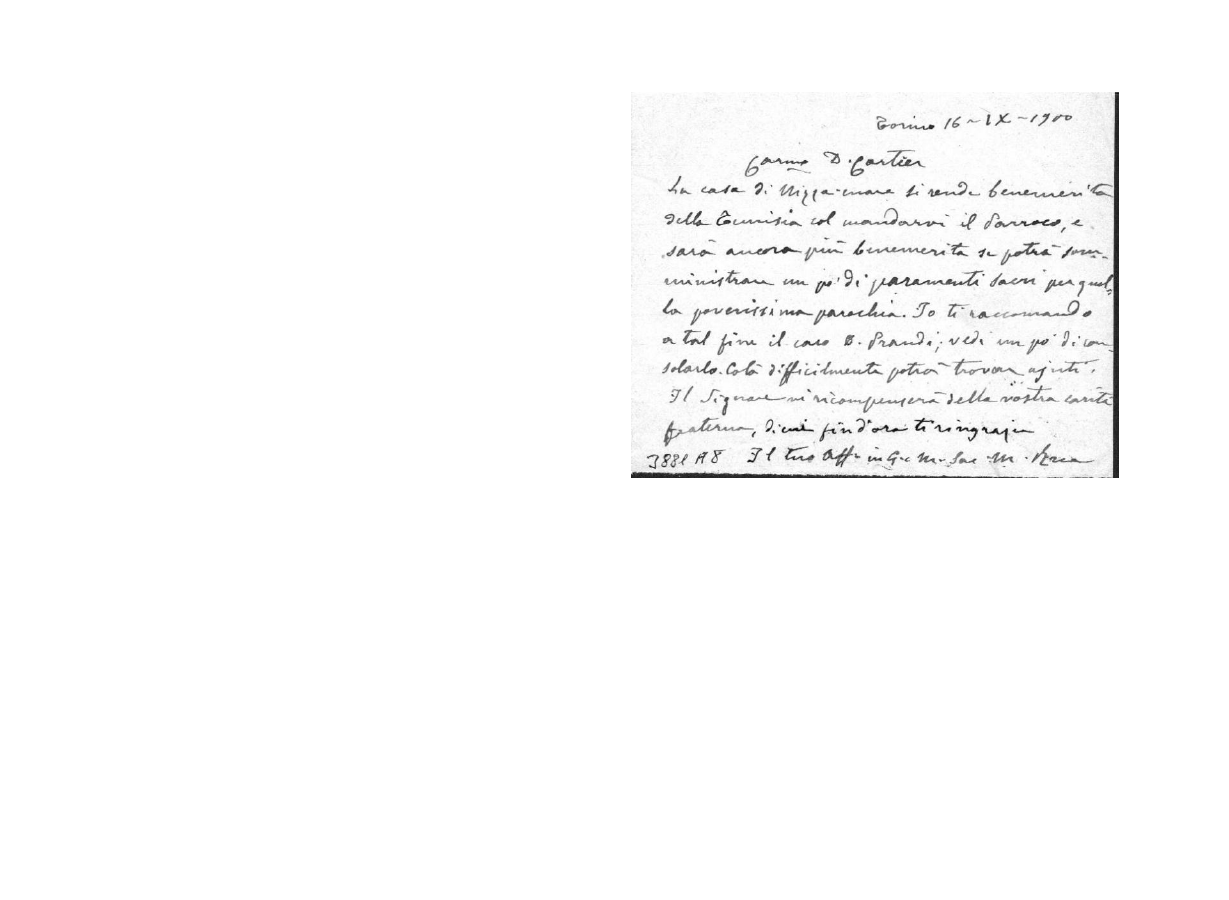 Torino 16-IX-1900
Carmo D. Cartier
La casa di Nizza-mare si rende benemerita
della Tunisia col mandarvi il Parroco, e
sarà ancora più benemerita se potrà som-
ministrare un po' di paramenti sacri per quel-
la poverissima parochia. Io ti raccomando
a tal fine il caro D. Prandi; vedi un po' di con-
solarlo. Colà difficilmente potrà trovar ajuti.
Il Signore vi ricompenserà della vostra carità
fraterna, di cui fin d'ora ti ringrazio
3881 A8 Il tuo Aff. in G. e M. Sac. M. Rua